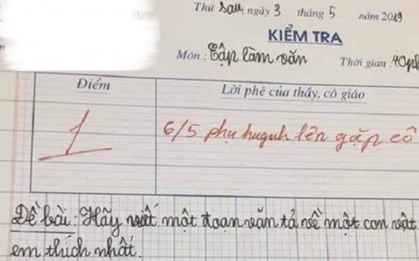 Thứ Sáu ngày 3 tháng 5 năm 2019
KIỂM TRA
Môn: Tập làm văn Thời gian: 40ph
Điểm
Lời phê của thầy, cô giáo
1
6/5 phụ huynh lên gặp cô
Đề bài: Hãy viết một đoạn văn tả về một con vật
em thích nhất.